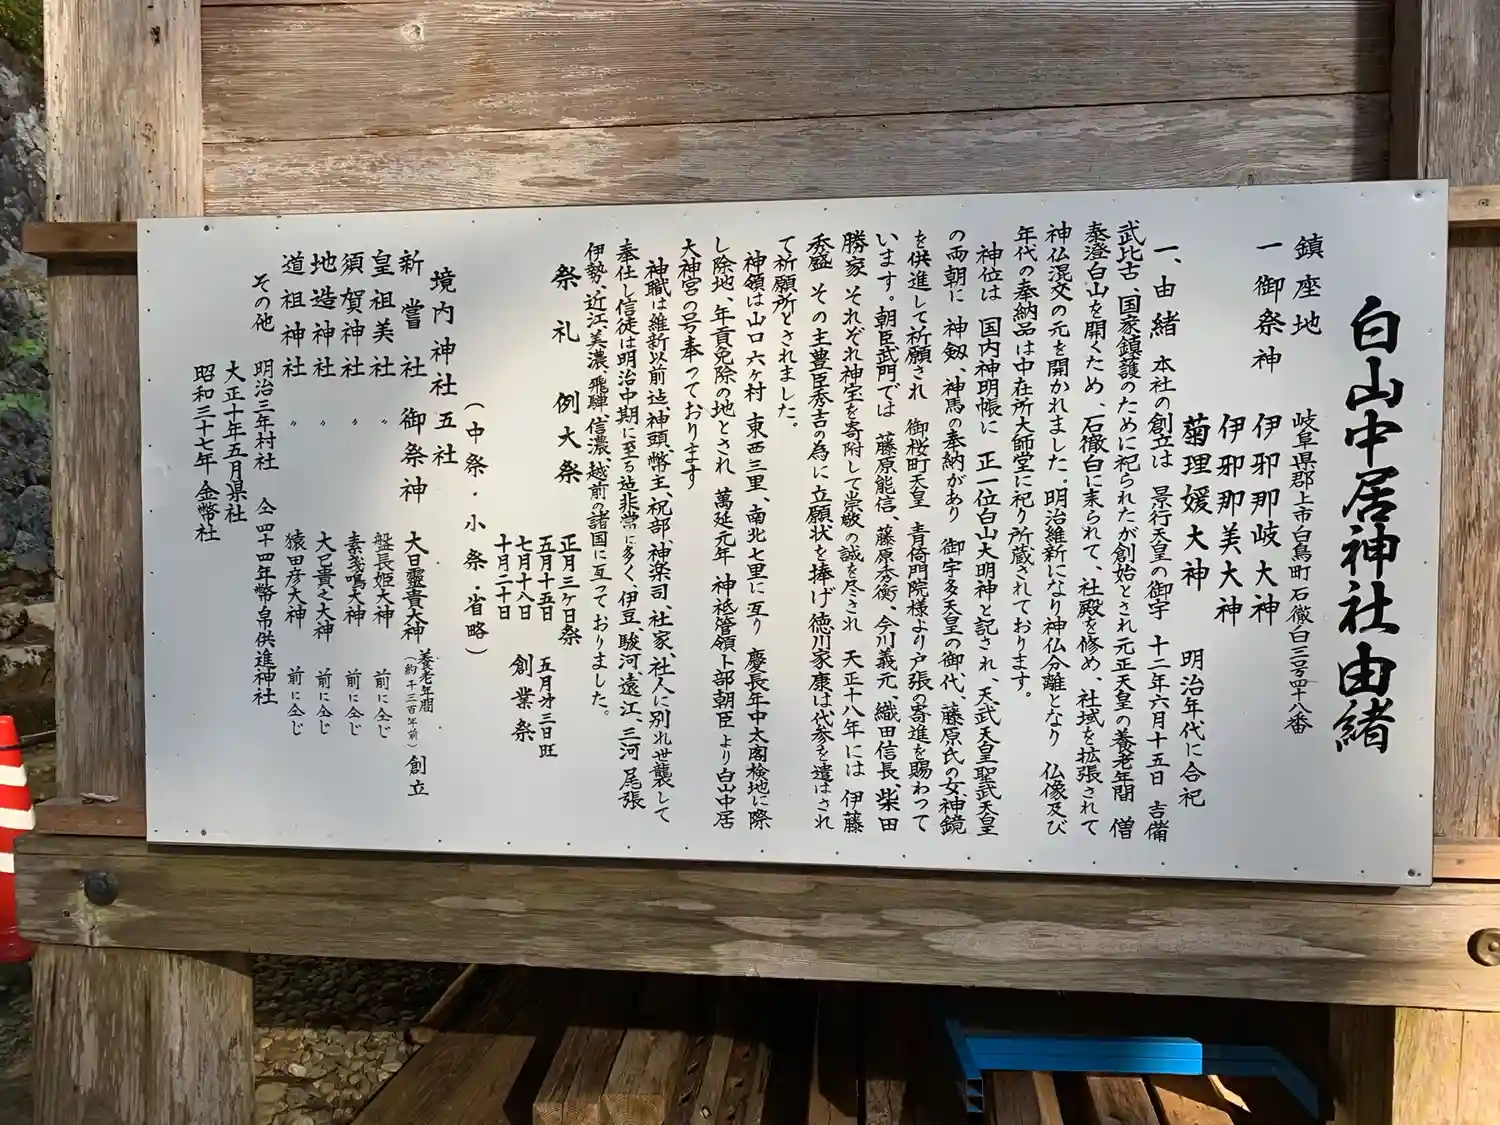 白山中居神社由緒
鎮座地 岐阜県郡上市白鳥町石徹白三号四十八番
一 御祭神 伊邪那岐大神
伊邪那美大神
菊理媛大神 明治年代に合祀
一、由緒 本社の創立は 景行天皇の御宇 十二年六月十五日 吉備
武比古、国家鎮護のために祀られたが創始とされ元正天皇の養老年間 僧
泰澄白山を開くため、石徹白に来られて、社殿を修め、社域を拡張されて
神仏混交の元を開かれました。明治維新になり神仏分離となり 仏像及び
年代の奉納品は中在所大師堂に祀り所蔵されております。
神位は 国内神明帳に 正一位白山大明神と記され、天武天皇聖武天皇
の両朝に 神剱、神馬の奉納があり 御宇多天皇の御代、藤原氏の女神鏡
を供進して祈願され 御桜町天皇 青倚門院様より戸張の寄進を賜わって
います。朝臣武門では 藤原能信、藤原秀衡、今川義元、織田信長、柴田
勝家 それぞれ神宝を寄附して崇敬の誠を尽され 天正十八年には 伊藤
秀盛 その主豊臣秀吉の為に 立願状を捧げ徳川家康は代参を遣はされ
て祈願所とされました。
神領は山口 六ヶ村 東西三里、南北七里に亙り 慶長年中太閤検地に際
し除地、年貢免除の地とされ 萬延元年 神祗管領卜部朝臣より白山中居
大神宮の号奉っております
神職は維新以前迄神頭、幣主、祝部、神楽司、社家、社人に別れ世襲して
奉仕し信徒は明治中期に至る迄非常に多く、伊豆、駿河、遠江、三河 尾張
伊勢、近江、美濃、飛騨、信濃、越前の諸国に亙っておりました。
祭礼 例大祭 正月三ケ日祭 五月才三日旺
五月十五日 創業祭
七月十八日
十月二十日
(中祭・小祭・省略)
境内神社五社
新嘗社 御祭神 大日孁貴大神 養老年間(約千三百年前)創立
皇祖美社 〃 盤長姫大神 前に仝じ
須賀神社 〃 素戔鳴大神 前に仝じ
地造神社 〃 大己貴之大神 前に仝じ
道祖神社 〃 猿田彦大神 前に仝じ
その他 明治三年村社 仝四十四年幣帛供進神社
大正十年五月県社
昭和三十七年金幣社